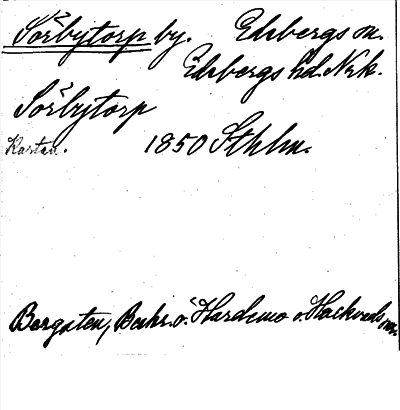 Sörbytorp by. Ekebergs sn.
Edsbergs hd. Nrk.
Sörbytorp
Kartan. 1850 Sthlm.
Bergsten, Beskr. ö. Hardemo o. Hackvads snr.